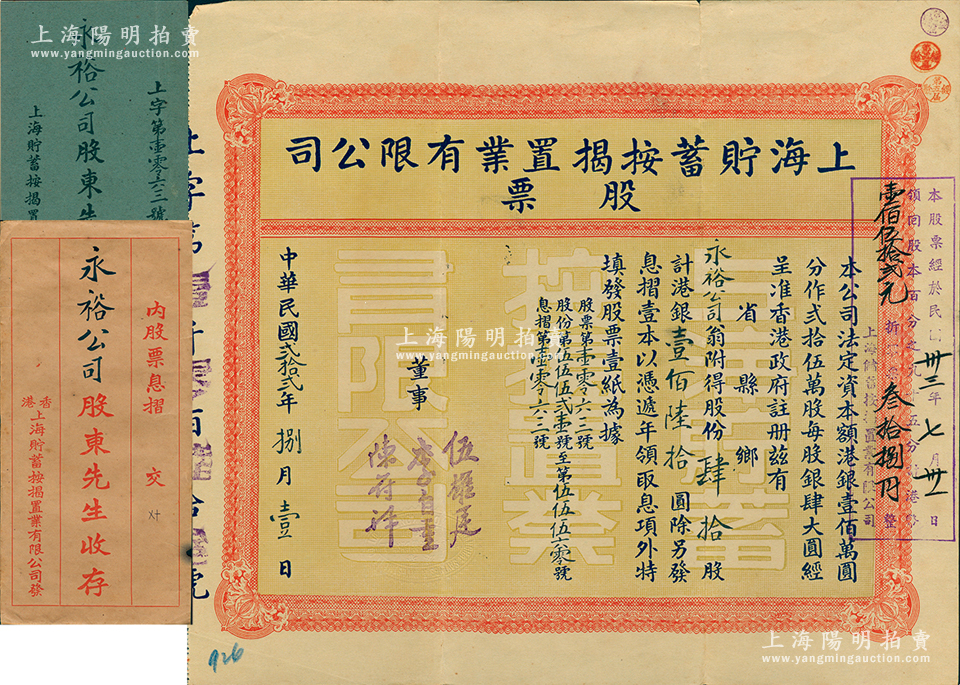 上海陽明拍賣
www.yangmingauction.com
上字第壹零六三號
永裕公司股東先
上海貯蓄按揭置
內股票息摺 交
永裕公司股東先生收存
香港上海貯蓄按揭置業有限公司發
上海貯蓄按揭置業有限公司
股票
本公司法定資本額港銀壹佰萬圓
分作貳拾伍萬股每股銀肆大圓經
呈准香港政府註册茲有
省 縣 鄉
永裕公司翁附得股份肆拾股
計港銀壹佰陸拾圓除另發
息摺壹本以憑遞年領取息項外特
填發股票壹紙為據
股票第壹零六三號
股份第伍伍伍貳壹號至第伍伍伍六零號
息摺第壹零六三號
董事
伍
中華民國貳拾貳年捌月壹日
本股票經於民國卅三年七月卅一日
領回股本百分之 十五分 港幣
叁拾捌 整
壹佰 拾貳元
上海陽明拍賣
www.yangmingauction.com
上海陽明拍賣
www.yangmingauction.com
926